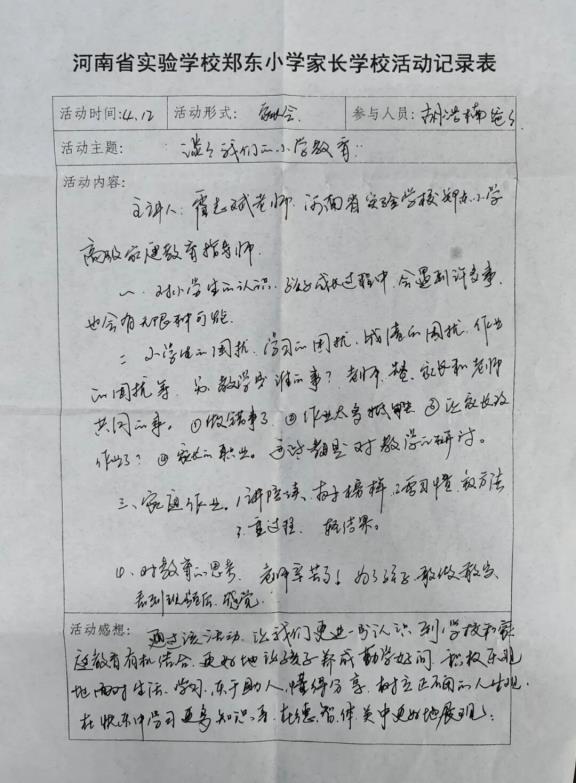 河南省实验学校郑东小学家长学校活动记录表
活动时间:4.12 活动形式: 参与人员:胡浩楠爸爸
活动主题: 谈谈我们的小学教育
活动内容:
主讲人:霍志斌老师.河南省实验学校郑东小学
高级家庭教育指导师.
一、对小学生的认识.孩子成长过程中.会遇到许多事.
也会有无限种可能.
二、小学生的困扰.学习的困扰.成绩的困扰.作业
的困扰等.教学是谁的事?老师、家长和老师
共同的事。①做错事了②作业太多③让家长改
作业了?④家长的职业。这些都是对教学的研讨。
三、家庭作业。1.讲陪读、孩子榜样.2.看习惯、教方法
3.重过程、轻结果。
四、对教育的思考.老师辛苦了!为了孩子.敢做.敢当.
看到班级后.感觉.
活动感想:通过该活动.让我们更进一步认识到学校和家
庭教育有机结合.更好地让孩子养成勤学好问.积极乐观
地面对生活、学习.乐于助人.懂得分享.树立正确的人生观.
在快乐中学习更多知识.在德、智、体、美中更好地展现.